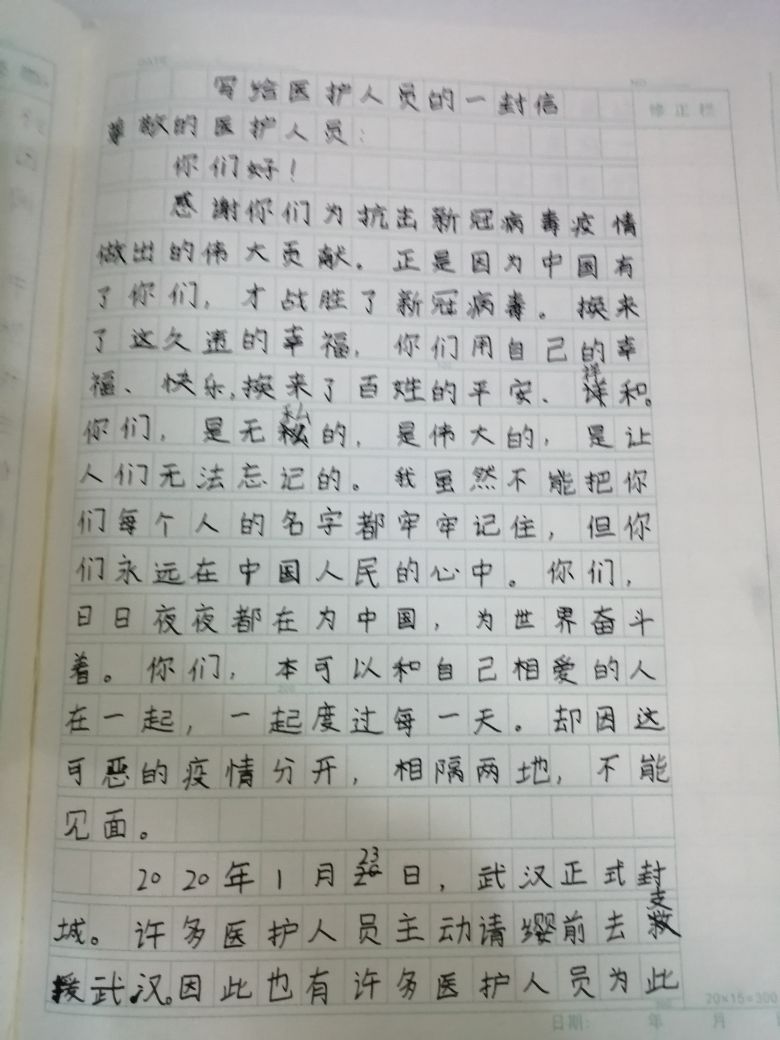 写给医护人员的一封信
修正栏
尊敬的医护人员：
你们好！
感谢你们为抗击新冠病毒疫情
做出的伟大贡献。正是因为中国有
了你们，才战胜了新冠病毒。换来
了这久违的幸福，你们用自己的幸
福、快乐，换来了百姓的平安、祥和。
你们，是无私的，是伟大的，是让
人们无法忘记的。我虽然不能把你
们每个人的名字都牢牢记住，但你
们永远在中国人民的心中。你们，
日日夜夜都在为中国，为世界奋斗
着。你们，本可以和自己相爱的人
在一起，一起度过每一天。却因这
可恶的疫情分开，相隔两地，不能
见面。
2020年1月23日，武汉正式封
城。许多医护人员主动请缨前去支
援武汉。因此也有许多医护人员为此
20×15=300
日期： 年 月